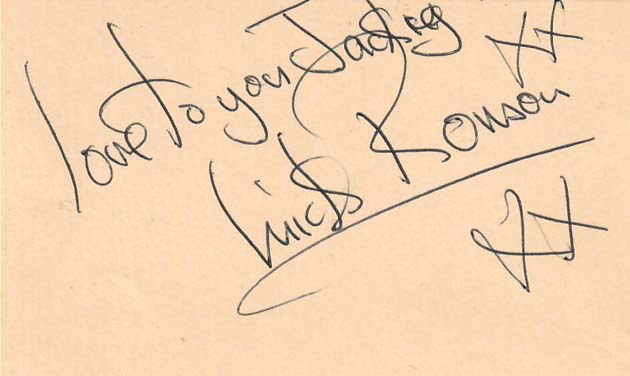 Love to you Jackey XX
Mick Ronson
XX